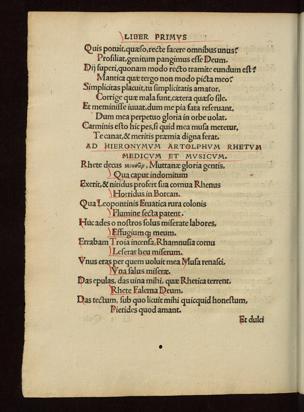 LIBER PRIMVS
Quis potuit, quæso, recte facere omnibus unus?
Profiliat, genitum pangimus esse Deum.
Dij superi, quonam modo recto tramite eundum est?
Mantica quæ tergo non modo picta meo?
Simplicitas placuit, tu simplicitatis amator.
Corrige quæ mala sunt, cætera quæso sile.
Et meminisse iuuat, dum me pia fata reseruant,
Dum mea perpetuo gloria in orbe uolat.
Carminis esto hic pes, si quid mea musa meretur,
Te canat, & meritis præmia digna ferat.
AD HIERONYMVM ARTOLPHVM RHETVM
MEDICVM ET MVSICVM.
Rhete decus Mutranæ gloria gentis.
Qua caput indomitum
Exerit, & nitidus profert sua cornua Rhenus
Horridus in Borean.
Qua Lepontinis Euatica rura colonis
Flumine secta patent.
Huc ades o nostros solus miserate labores,
Effugiumq; meum.
Errabam Troia incensa, Rhamnusia cornu
Leserat heu miserum.
Vnus eras per quem uoluit mea Musa renasci.
Vna salus miseræ.
Das epulas, das uina mihi, quæ Rhetica terrent.
Rhete Falerna Deum.
Das tectum, sub quo licuit mihi quicquid honestum,
Pierides quod amant.
Et dulci